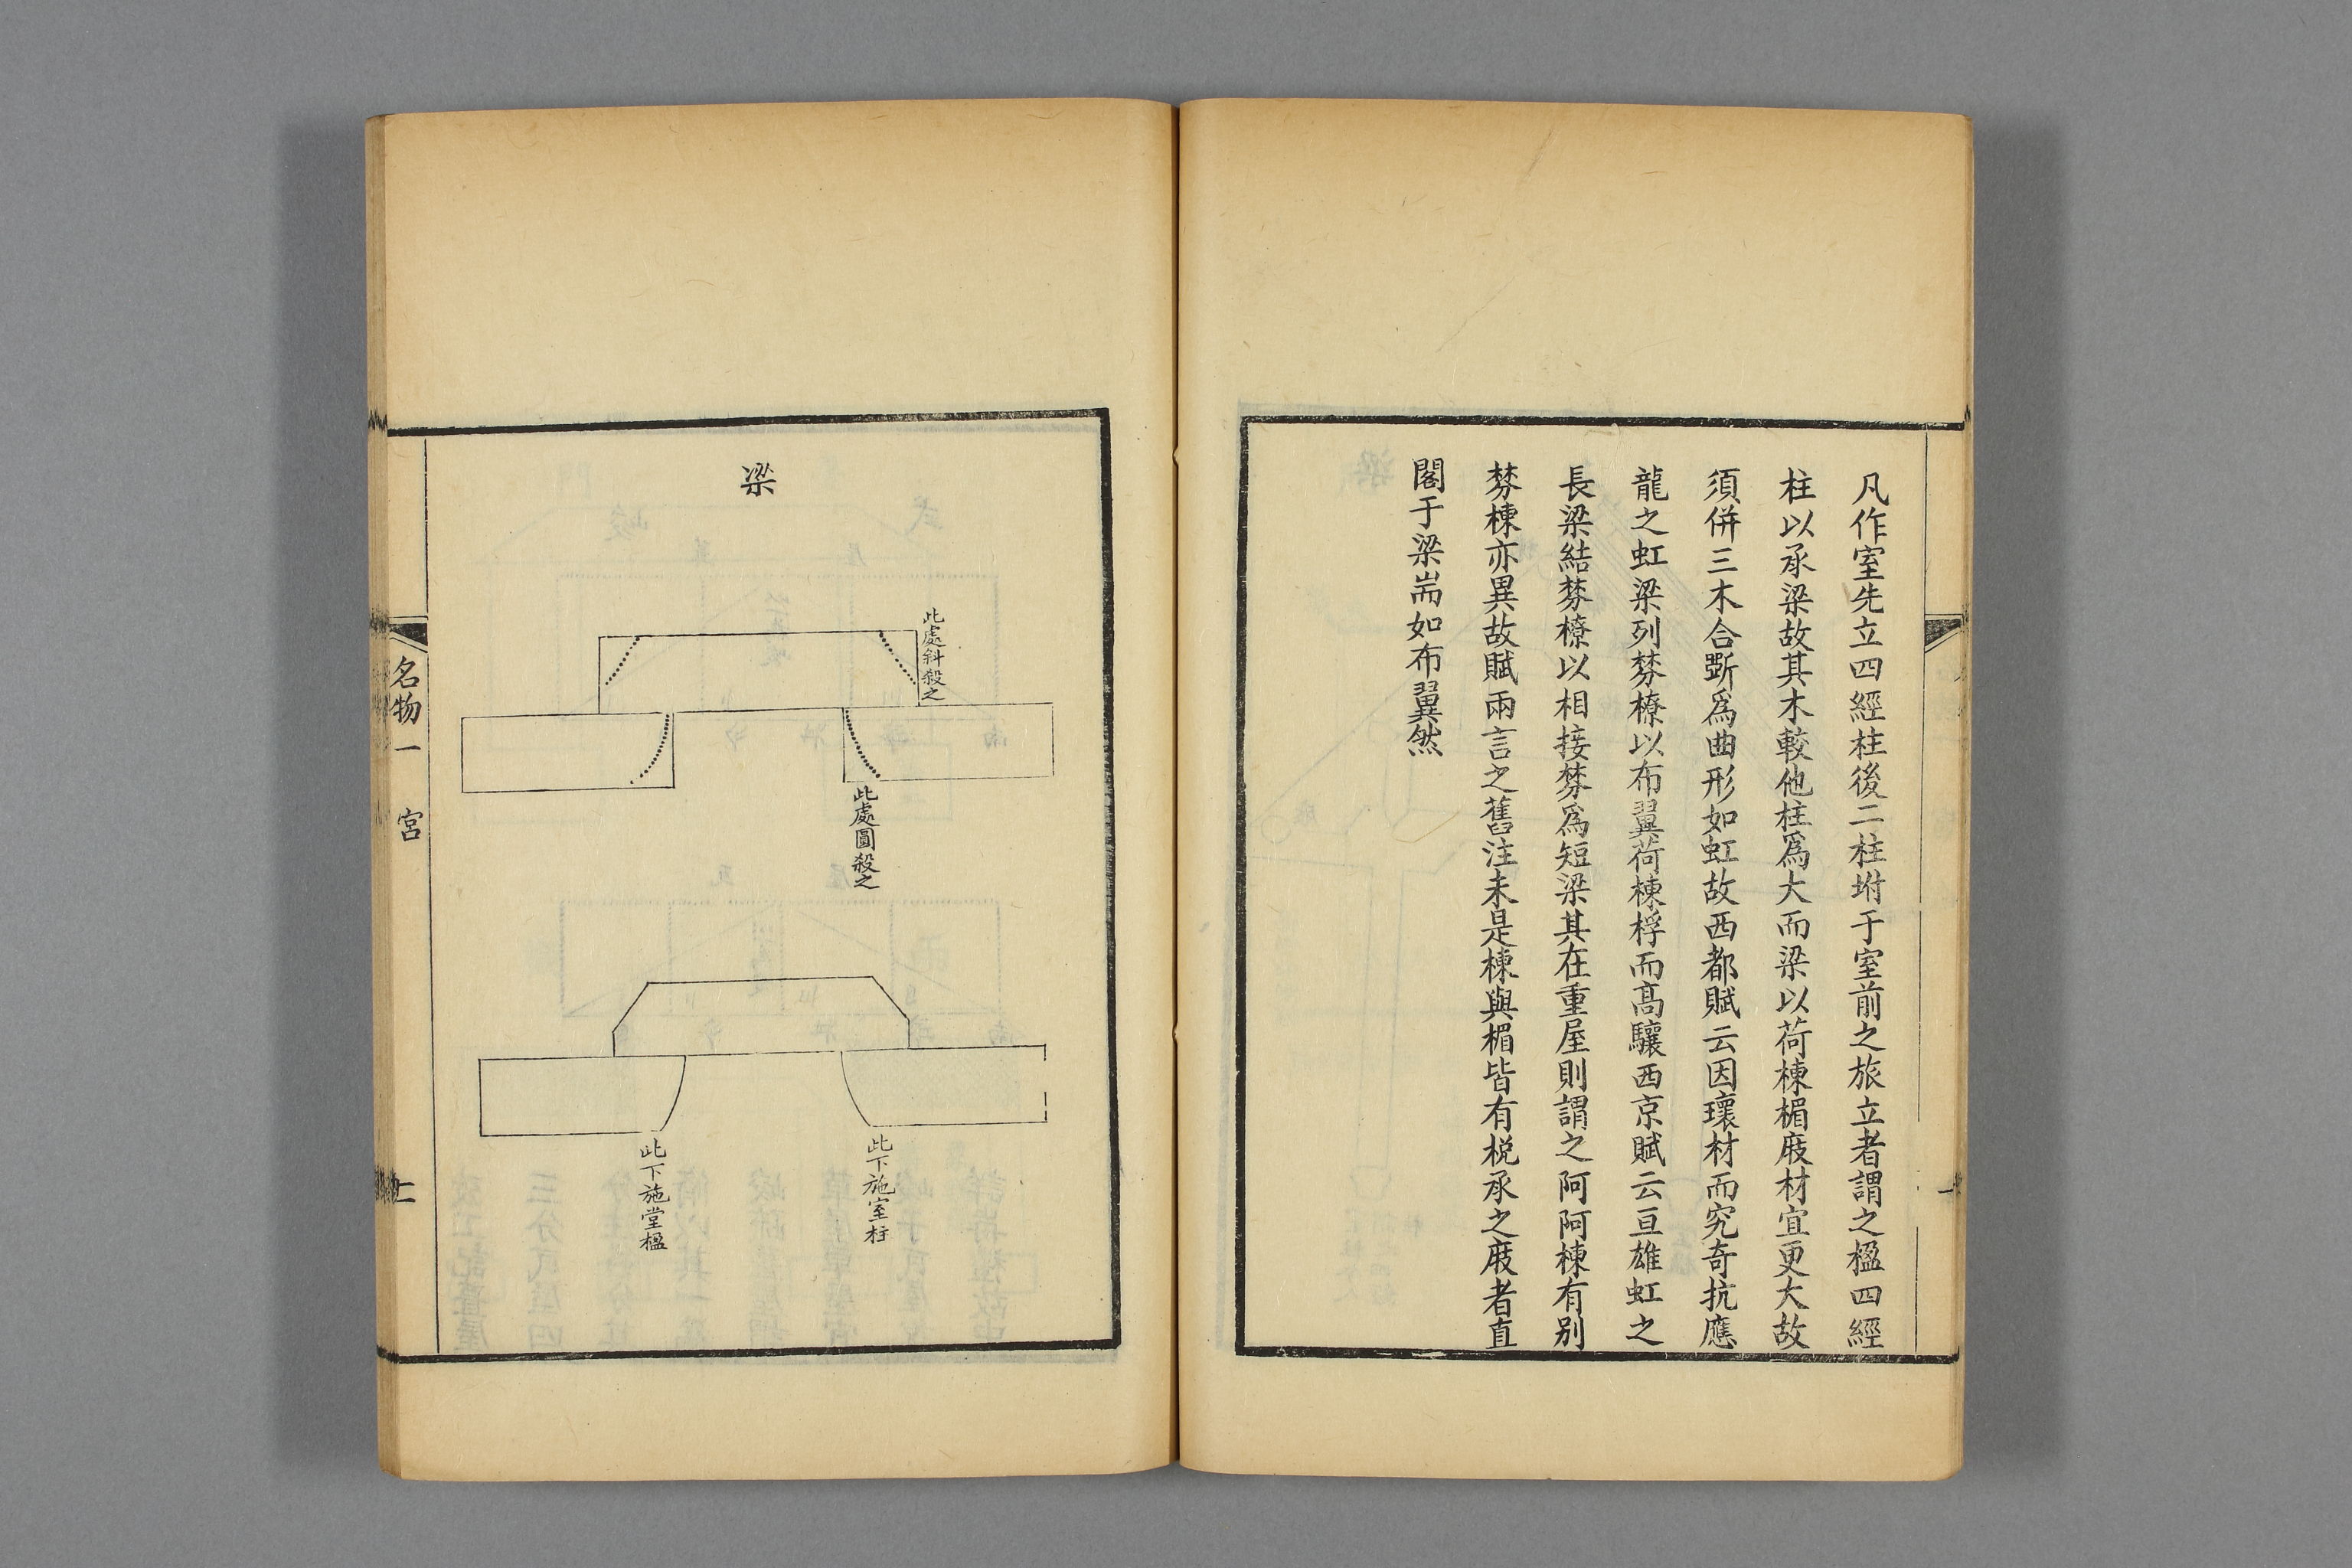 凡作室先立四經柱後二柱坿于室前之旅立者謂之楹四經
柱以承梁故其木較他柱爲大而梁以荷棟楣庪材宜更大故
須併三木合斲爲曲形如虹故西都賦云因瓌材而究奇抗應
龍之虹梁列棼橑以布翼荷棟桴而高驤西京賦云亘雄虹之
長梁結棼橑以相接棼爲短梁其在重屋則謂之阿阿棟有别
棼棟亦異故賦兩言之舊注未是棟與楣皆有梲承之庪者直
閣于梁耑如布翼然
梁
此處斜殺之
此處圓殺之
此下施室柱
此下施堂楹
名物一 宮